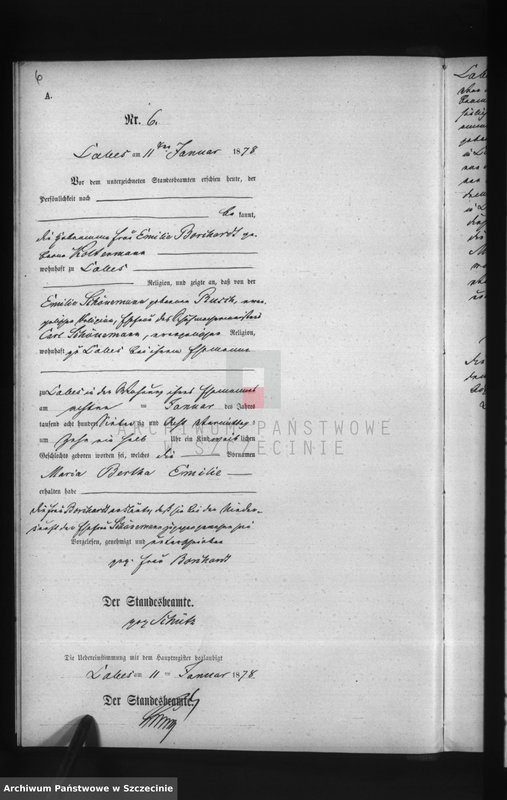 6
A.
Nr. 6.
Labes am 11ten Januar 1878
Vor dem unterzeichneten Standesbeamten erschien heute, der
Persönlichkeit nach
be kannt,
die Hebamme Frau Emilie Borchardt ge-
borene
wohnhaft zu Labes
Religion, und zeigte an, daß von der
Emilie Schünemann geborene Rusch, evan-
gelischer Religion, Ehefrau des
Carl Schünemann, evangelischer Religion,
wohnhaft zu Labes bei ihrem Ehemanne
zu Labes in der Wohnung ihres Ehemannes
am achten ten Januar des Jahres
tausend acht hundert siebenzig und acht Vormittags
um zehn ein halb Uhr ein Kind weiblichen
Geschlechts geboren worden sei, welches die Vornamen
Maria Bertha Emilie
erhalten habe
die Frau Borchardt erklärte, daß sie bei der Nieder-
kunft der Ehefrau Schünemann zugegen gewesen sei
Vorgelesen, genehmigt und unterschrieben
gez. Frau Borchardt
Der Standesbeamte.
gez. Schütz
Die Uebereinstimmung mit dem Hauptregister beglaubigt
Labes am 11 ten Januar 1878.
Der Standesbeamte.
ARCHIWUM PAŃSTWOWE
W SZCZECINIE
Archiwum Państwowe w Szczecinie